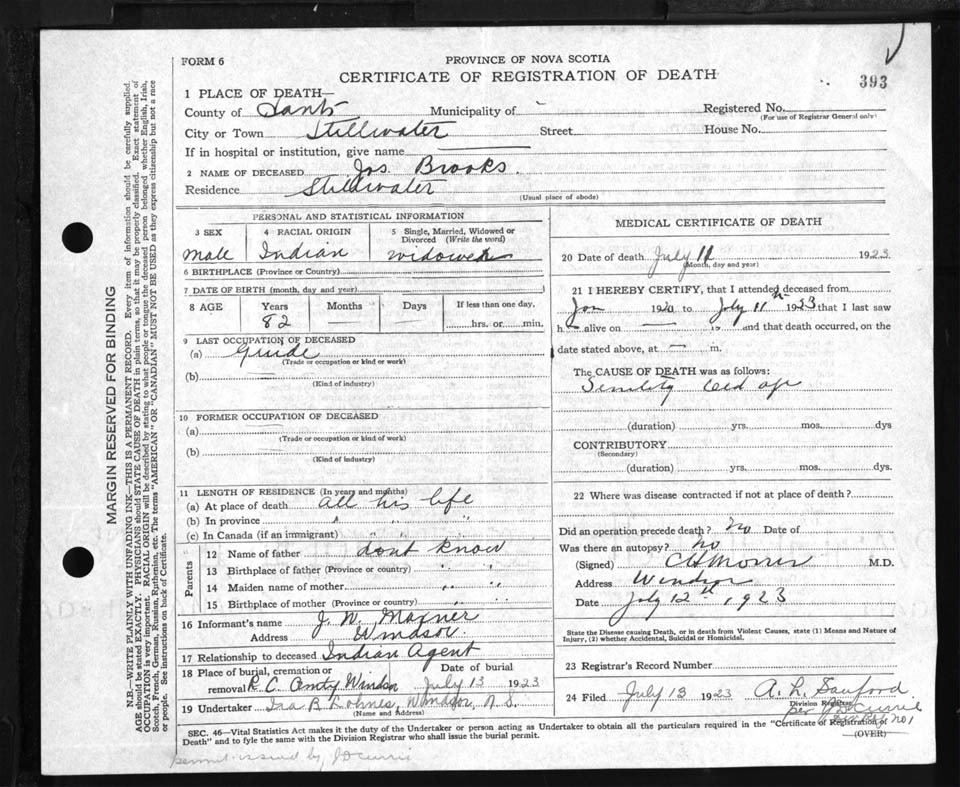 FORM 6
PROVINCE OF NOVA SCOTIA
CERTIFICATE OF REGISTRATION OF DEATH
393
1 PLACE OF DEATH—
County of Hants Municipality of Registered No.
(For use of Registrar General only)
City or Town Stillwater Street House No.
If in hospital or institution, give name
2 NAME OF DECEASED Jos. Brooks.
Residence Stillwater
(Usual place of abode)
PERSONAL AND STATISTICAL INFORMATION
3 SEX 4 RACIAL ORIGIN 5 Single, Married, Widowed or Divorced (Write the word)
male Indian widower
6 BIRTHPLACE (Province or Country)
7 DATE OF BIRTH (month, day and year)
8 AGE Years Months Days If less than one day,
82 — hrs. or min.
9 LAST OCCUPATION OF DECEASED
(a) Guide
(Trade or occupation or kind or work)
(b) —
(Kind of industry)
10 FORMER OCCUPATION OF DECEASED
(a)
(Trade or occupation or kind of work)
(b)
(Kind of industry)
11 LENGTH OF RESIDENCE (In years and months)
(a) At place of death all his life
(b) In province "
(c) In Canada (if an immigrant) " " "
Parents
12 Name of father dont know
13 Birthplace of father (Province or country) " "
14 Maiden name of mother " "
15 Birthplace of mother (Province or country) " "
16 Informant's name J. W. Maxner
Address Windsor.
17 Relationship to deceased Indian Agent
18 Place of burial, cremation or removal R. C. Windsor Date of burial July 13 1923
19 Undertaker Windsor, N. S.
(Name and Address)
MEDICAL CERTIFICATE OF DEATH
20 Date of death July 11 1923
(Month, day and year)
21 I HEREBY CERTIFY, that I attended deceased from
Jan 1920 to July 11th 1923 that I last saw
h alive on — 19 and that death occurred, on the
date stated above, at — m.
The CAUSE OF DEATH was as follows:
Senility
(duration) yrs. mos. dys
CONTRIBUTORY
(Secondary)
(duration) yrs. mos. dys.
22 Where was disease contracted if not at place of death?
Did an operation precede death? No Date of
Was there an autopsy? no
(Signed) M.D.
Address Windsor
Date July 12th 1923
State the Disease causing Death, or in death from Violent Causes, state (1) Means and Nature of
Injury, (2) whether Accidental, Suicidal or Homicidal.
23 Registrar's Record Number
24 Filed July 13 1923 A. L. Sanford
Division Registrar
per J D Currie
No 1
SEC. 46—Vital Statistics Act makes it the duty of the Undertaker or person acting as Undertaker to obtain all the particulars required in the "Certificate of Registration of
Death" and to fyle the same with the Division Registrar who shall issue the burial permit.
(OVER)
permit issued by J D Currie
MARGIN RESERVED FOR BINDING
N.B.—WRITE PLAINLY WITH UNFADING INK—THIS IS A PERMANENT RECORD. Every item of information should be carefully supplied.
AGE should be stated EXACTLY. PHYSICIANS should STATE CAUSE OF DEATH in plain terms, so that it may be properly classified. Exact statement of
OCCUPATION is very important. RACIAL ORIGIN will be described by stating to what people or tongue the deceased person belonged whether English, Irish,
Scotch, French, German, Russian, Ruthenian, etc. The terms "AMERICAN" OR "CANADIAN" MUST NOT BE USED as they express citizenship but not a race
or people. See instructions on back of Certificate.